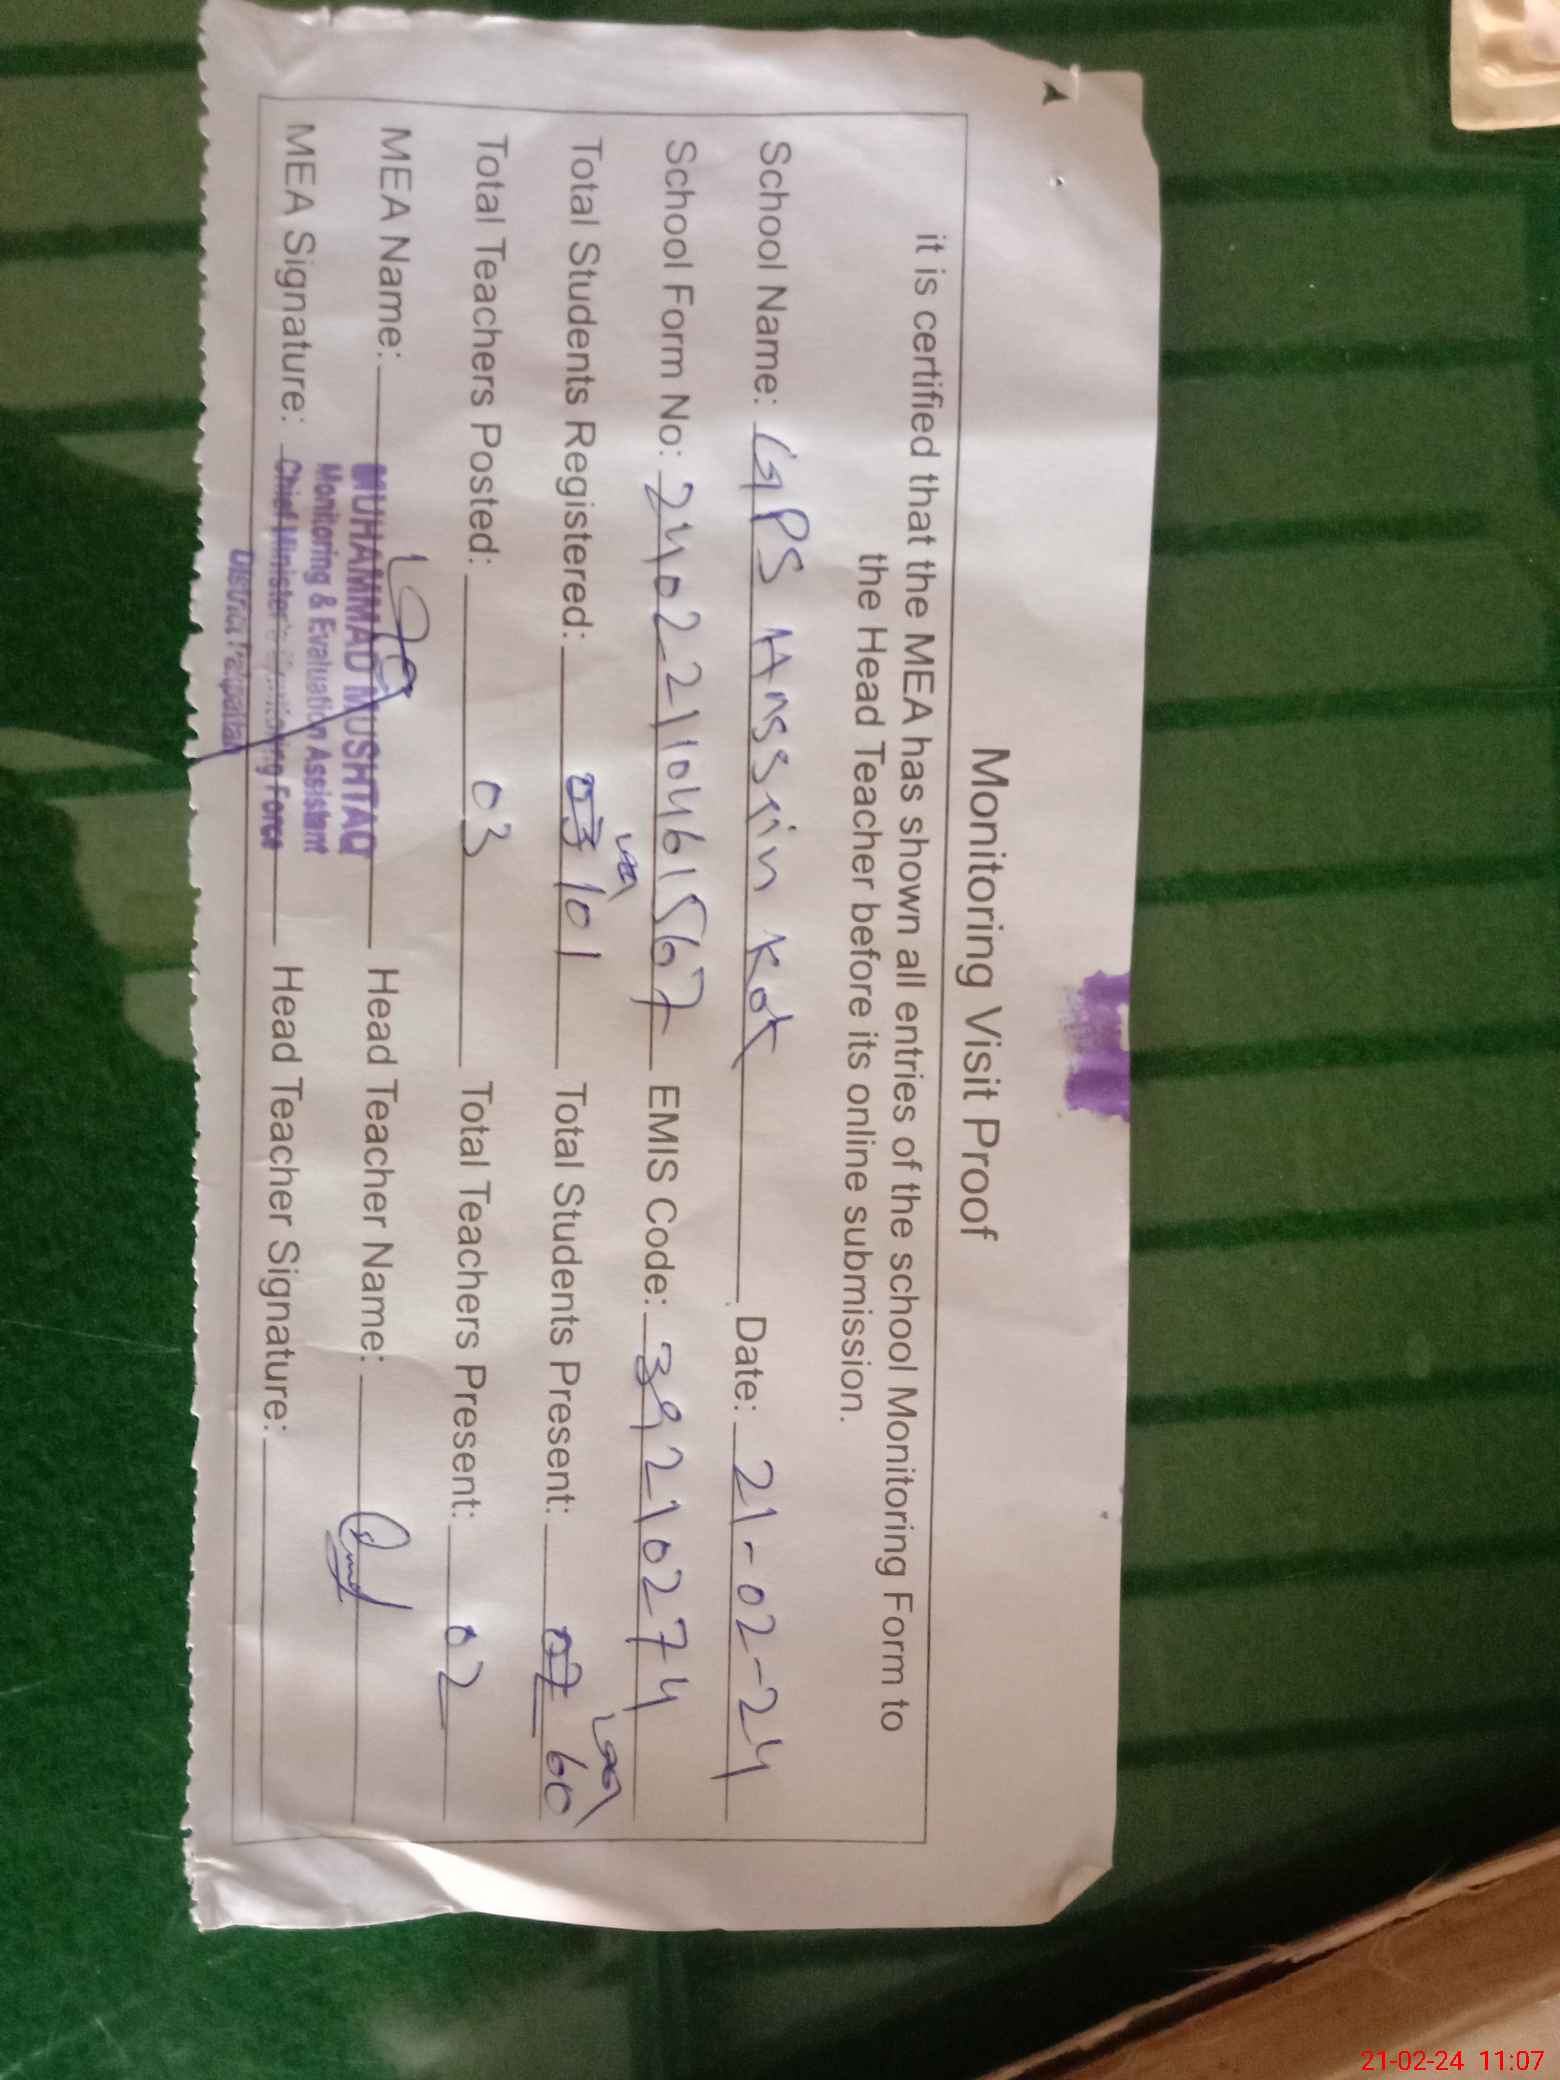 Monitoring Visit Proof
it is certified that the MEA has shown all entries of the school Monitoring Form to
the Head Teacher before its online submission.
School Name: GPS Hassain Kot Date: 21-02-24
School Form No: 2402210461567 EMIS Code: 39210274
Total Students Registered: 03 101 Total Students Present: 02 60
Total Teachers Posted: 03 Total Teachers Present: 02
MEA Name: MUHAMMAD MUSHTAQ Head Teacher Name:
Monitoring & Evaluation Assistant
MEA Signature: Chief Minister's Monitoring Force Head Teacher Signature:
District Pakpattan
21-02-24 11:07